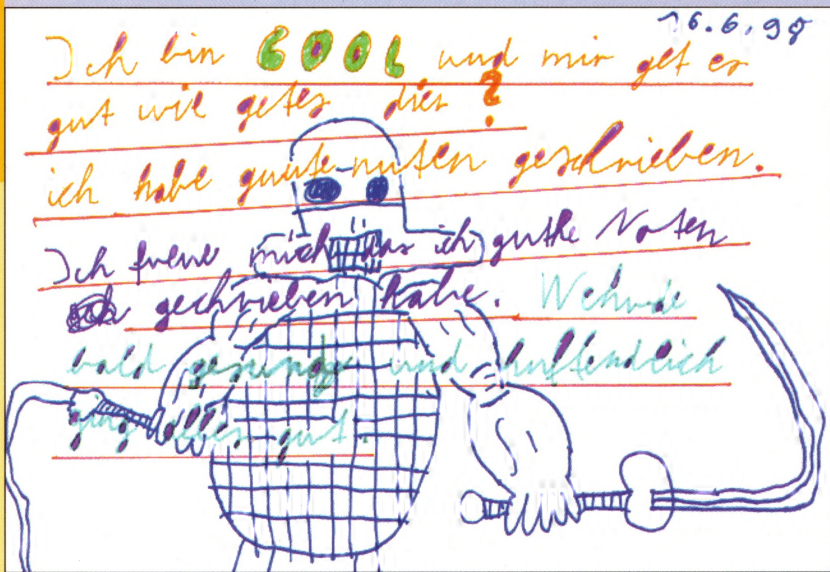 16.6.98
Ich bin COOL und mir get es
gut wie getes dier?
ich habe guute nuten geschrieben.
Ich freue mich das ich guthe Noten
geschrieben habe. Wehrde
bald gesund und huffendlich
ging alles gut.